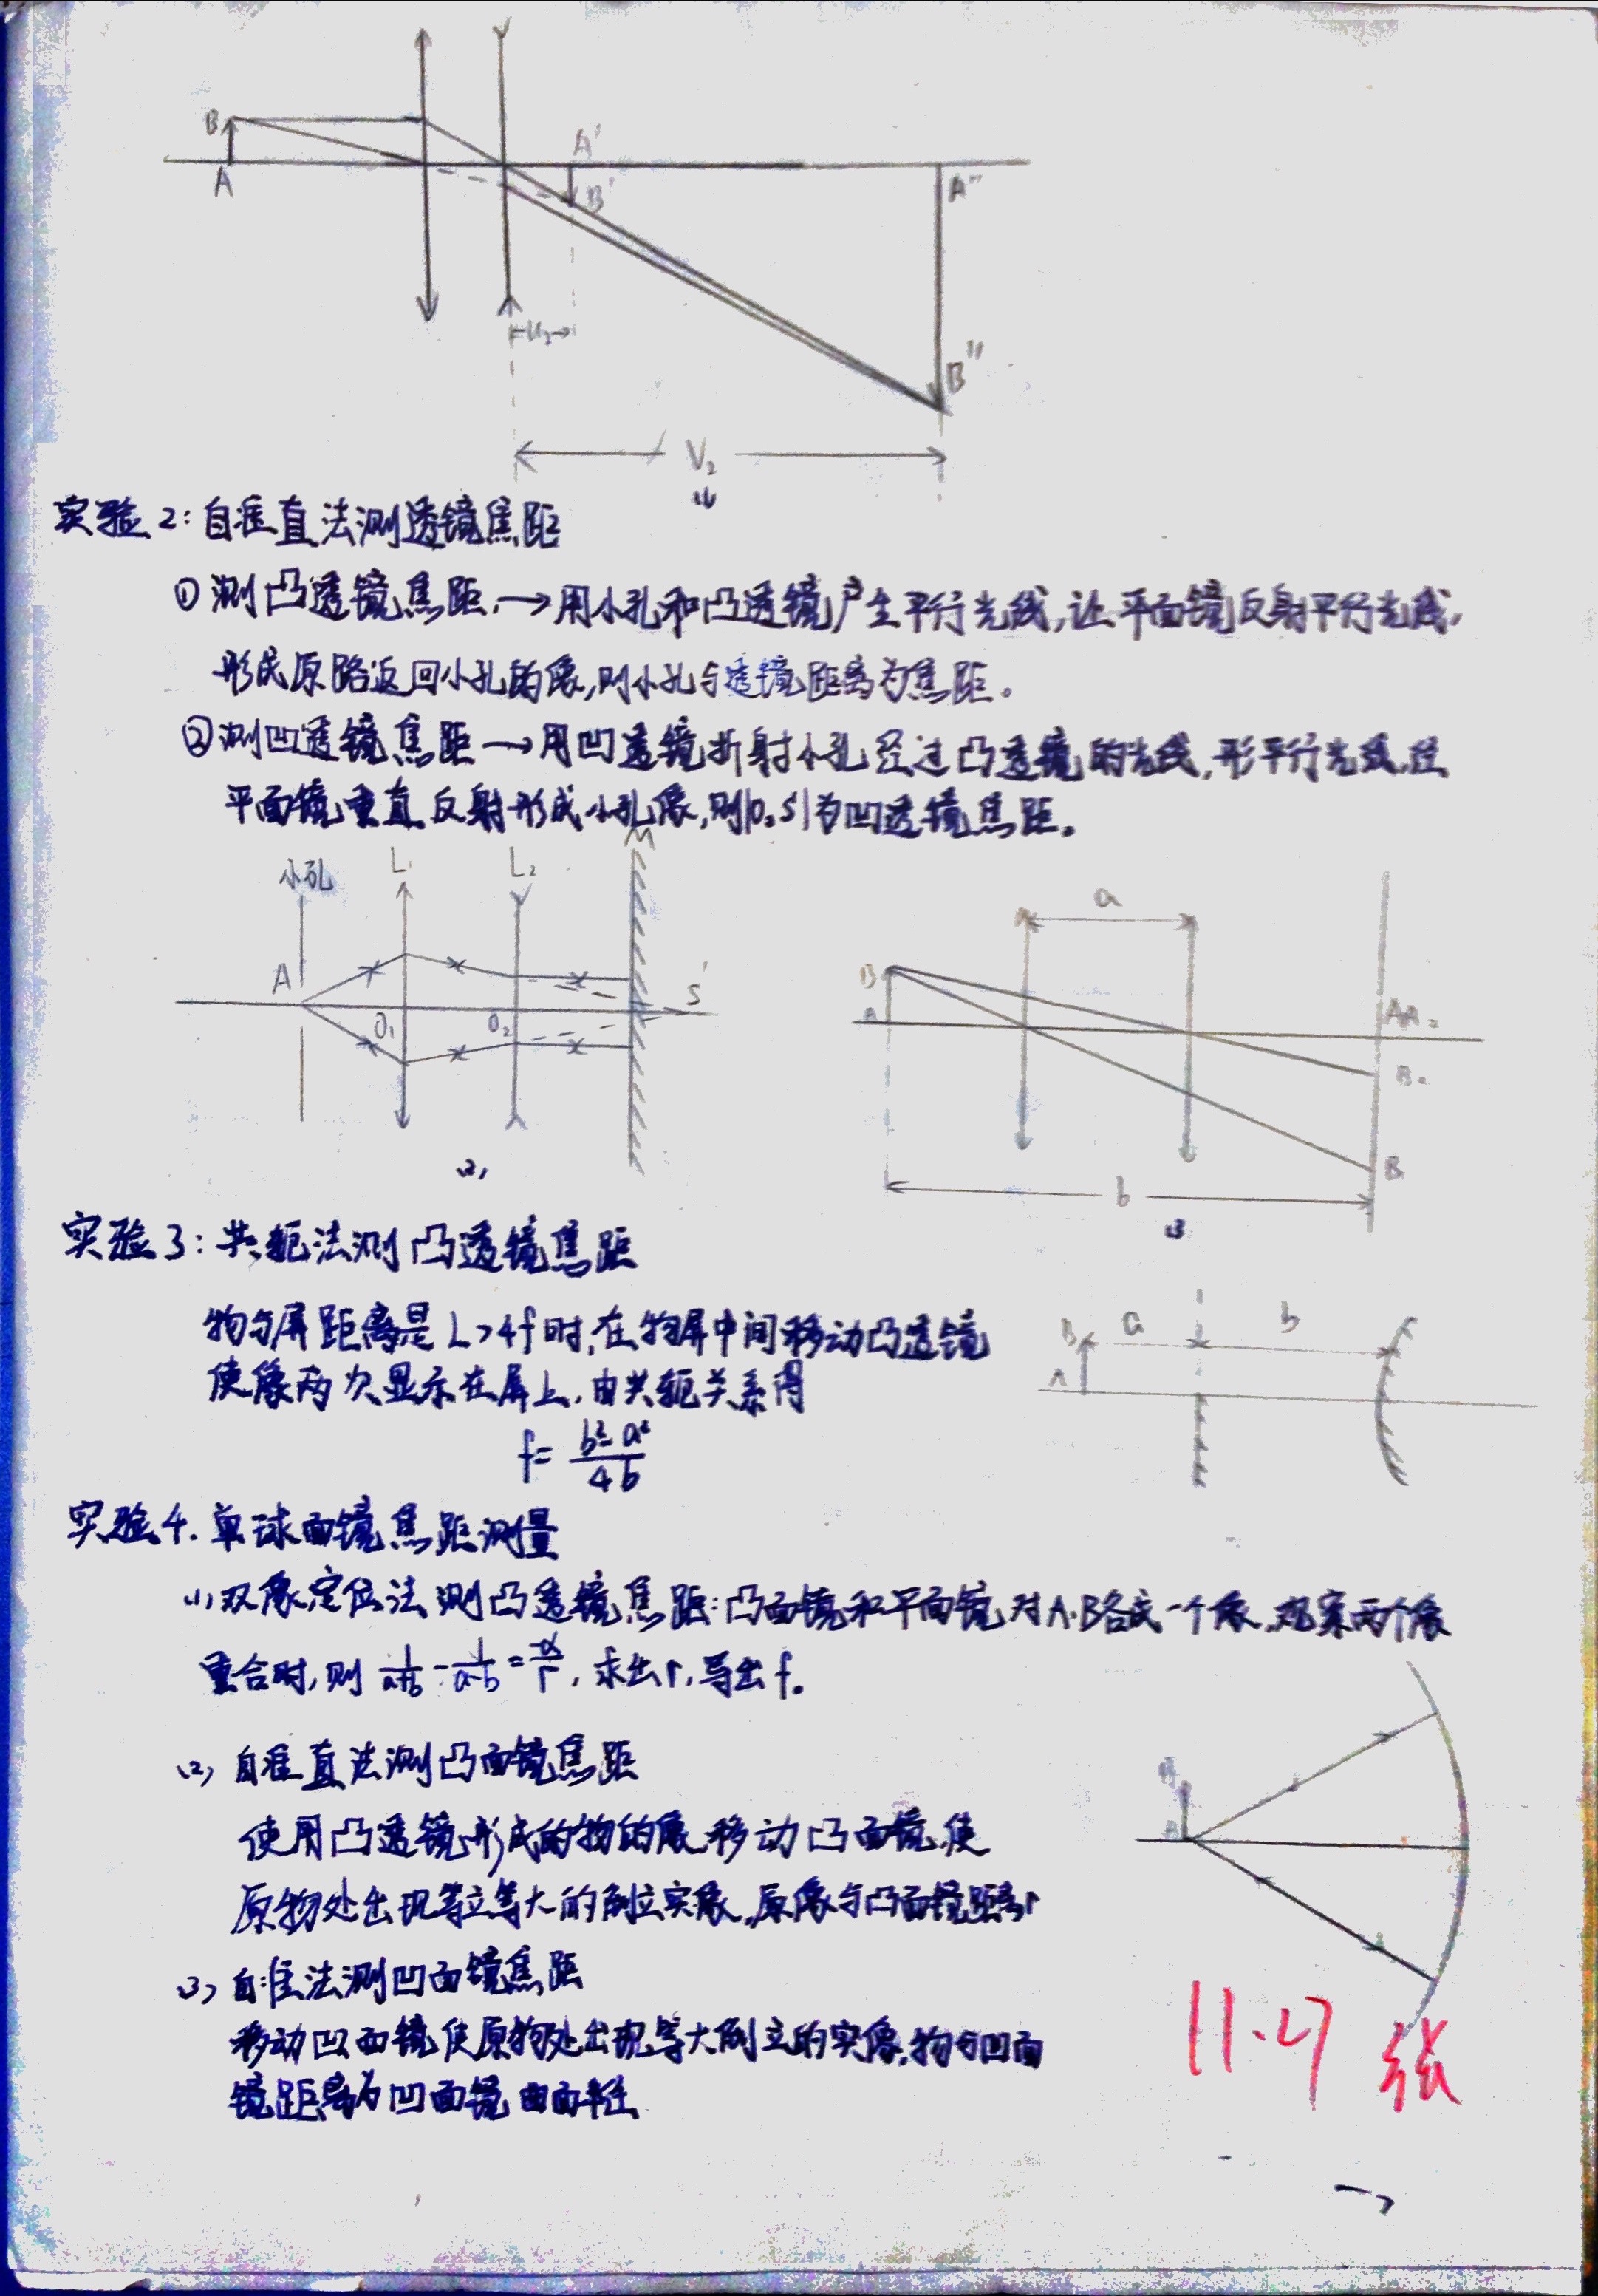 B
A
A'
B'
A''
B''
u₂
V₂
(1)
实验2:自准直法测透镜焦距
①测凸透镜焦距.→用小孔和凸透镜产生平行光线,让平面镜反射平行光线,
形成原路返回小孔的像,则小孔与透镜距离为焦距。
②测凹透镜焦距→用凹透镜折射小孔经过凸透镜的光线,形平行光线,经
平面镜垂直反射形成小孔像,则|O₂S'|为凹透镜焦距。
小孔 L₁ L₂ M
A O₁ O₂ S'
(2)
a
B
A
B₂
b
(3)
实验3:共轭法测凸透镜焦距
物与屏距离是L>4f时,在物屏中间移动凸透镜
使像两次显示在屏上,由共轭关系得
f= b²-a²/4b
B a b
A
实验4.单球面镜焦距测量
(1)双像定位法测凸透镜焦距:凸面镜和平面镜对A.B各成一个像,观察两个像
重合时,则 1/a+b - 1/a-b = -2/r, 求出r,导出f。
(2)自准直法测凸面镜焦距
使用凸透镜形成的物的像,移动凸面镜,使
原物处出现等立等大的倒立实像,原像与凸面镜距为r
(3)自准法测凹面镜焦距
移动凹面镜使原物处出现等大倒立的实像,物与凹面
镜距离为凹面镜曲面半径
11.27 张